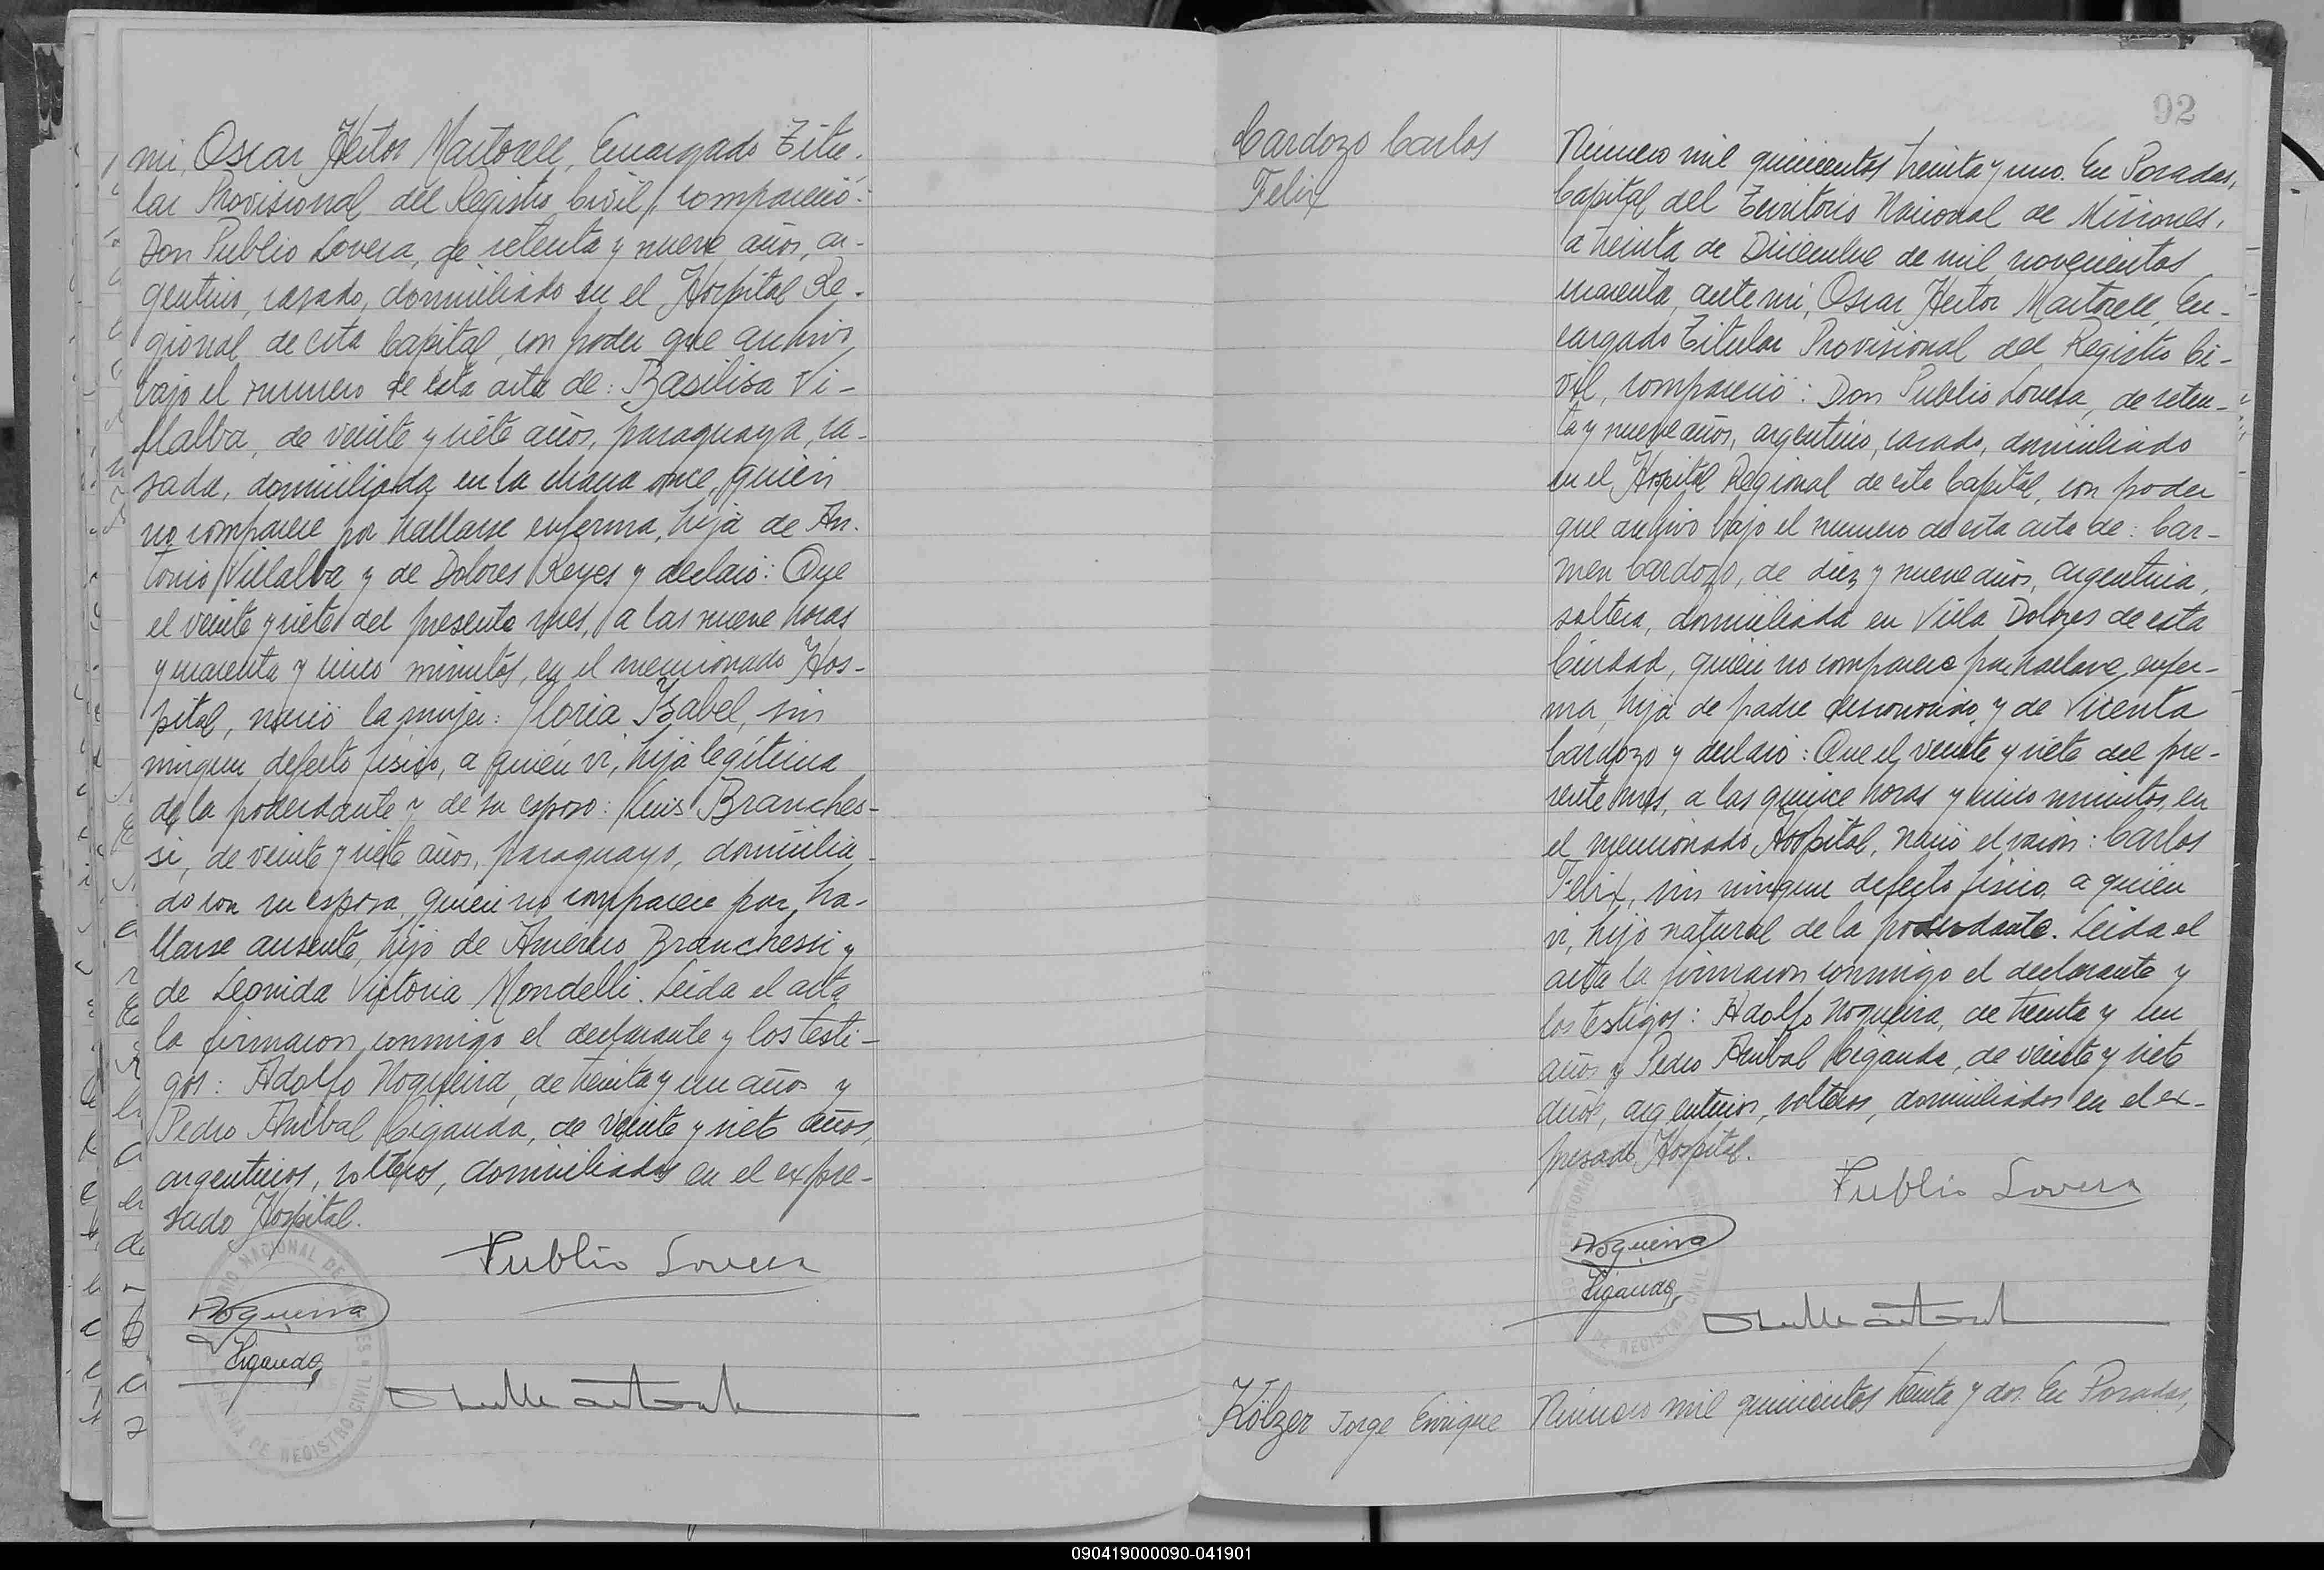 mi, Oscar Hector Martorell, Encargado Titu-
lar Provisional del Registro Civil, compareció:
Don Publio Lovera, de setenta y nueve años, ar-
gentino, casado, domiciliado en el Hospital Re-
gional de esta Capital, con poder que archivo
bajo el numero de esta acta de: Basilisa Vi-
llalba, de veinte y siete años, paraguaya, ca-
sada, domiciliada en la chacra once, quien
no comparece por hallarse enferma, hija de An-
tonio Villalba y de Dolores Reyes y declaró: Que
el veinte y siete del presente mes, a las nueve horas
y cuarenta y cinco minutos, en el mencionado Hos-
pital, nació la mujer: Gloria Isabel, sin
ningun defecto fisico, a quién vi, hija legítima
de la poderdante y de su esposo: Luis Branches-
si, de veinte y siete años, paraguayo, domicilia-
do con su esposa, quien no comparece por ha-
llarse ausente, hijo de Americo Branchessi y
de Leonida Victoria Mondelli. Leida el acta
la firmaron conmigo el declarante y los testi-
gos: Adolfo Nogueira, de treinta y un años y
Pedro Anibal Ciganda, de veinte y siete años,
argentinos, solteros, domiciliados en el expre-
sado Hospital.
Publio Lovera
Nogueira
Ciganda
TERRITORIO NACIONAL DE MISIONES
OFICINA DE REGISTRO CIVIL
92
Cardozo Carlos
Felix
Número mil quinientos treinta y uno. En Posadas,
Capital del Territorio Nacional de Misiones,
a treinta de Diciembre de mil novecientos
cuarenta, ante mi, Oscar Hector Martorell, En-
cargado Titular Provisional del Registro Ci-
vil, compareció: Don Publio Lovera, de seten-
ta y nueve años, argentino, casado, domiciliado
en el Hospital Regional de esta Capital, con poder
que archivo bajo el numero de esta acta de: Car-
men Cardozo, de diez y nueve años, argentina,
soltera, domiciliada en Villa Dolores de esta
Ciudad, quien no comparece por hallarse enfer-
ma, hija de padre desconocido y de Vicenta
Cardozo y declaró: Que el veinte y siete del pre-
sente mes, a las quince horas y cinco minutos, en
el mencionado Hospital, nació el varón: Carlos
Felix, sin ningun defecto fisico, a quien
vi, hijo natural de la poderdante. Leida el
acta la firmaron conmigo el declarante y
los testigos: Adolfo Nogueira, de treinta y un
años y Pedro Anibal Ciganda, de veinte y siete
años, argentinos, solteros, domiciliados en el ex-
presado Hospital.
Publio Lovera
Nogueira
Ciganda
Kölzer Jorge Enrique
Número mil quinientos treinta y dos. En Posadas,
090419000090-041901